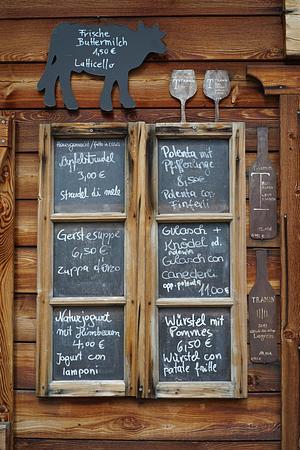 Frische
Buttermilch
1,50 €
Latticello
Hausgemacht / fatto in casa
Apfelstrudel
3,00 €
strudel di mele
Polenta mit
Pfifferlinge
8,50 €
Polenta con
Finferli
Gerstesuppe
6,50 €
zuppa d'orzo
Gulasch +
Knödel od.
Gulasch con
Canederli
opp. polenta
11,00 €
Naturjogurt
mit Himbeeren
4,00 €
Jogurt con
lamponi
Würstel mit
Pommes
6,50 €
Würstel con
patate fritte
TRAMIN
Lagrein